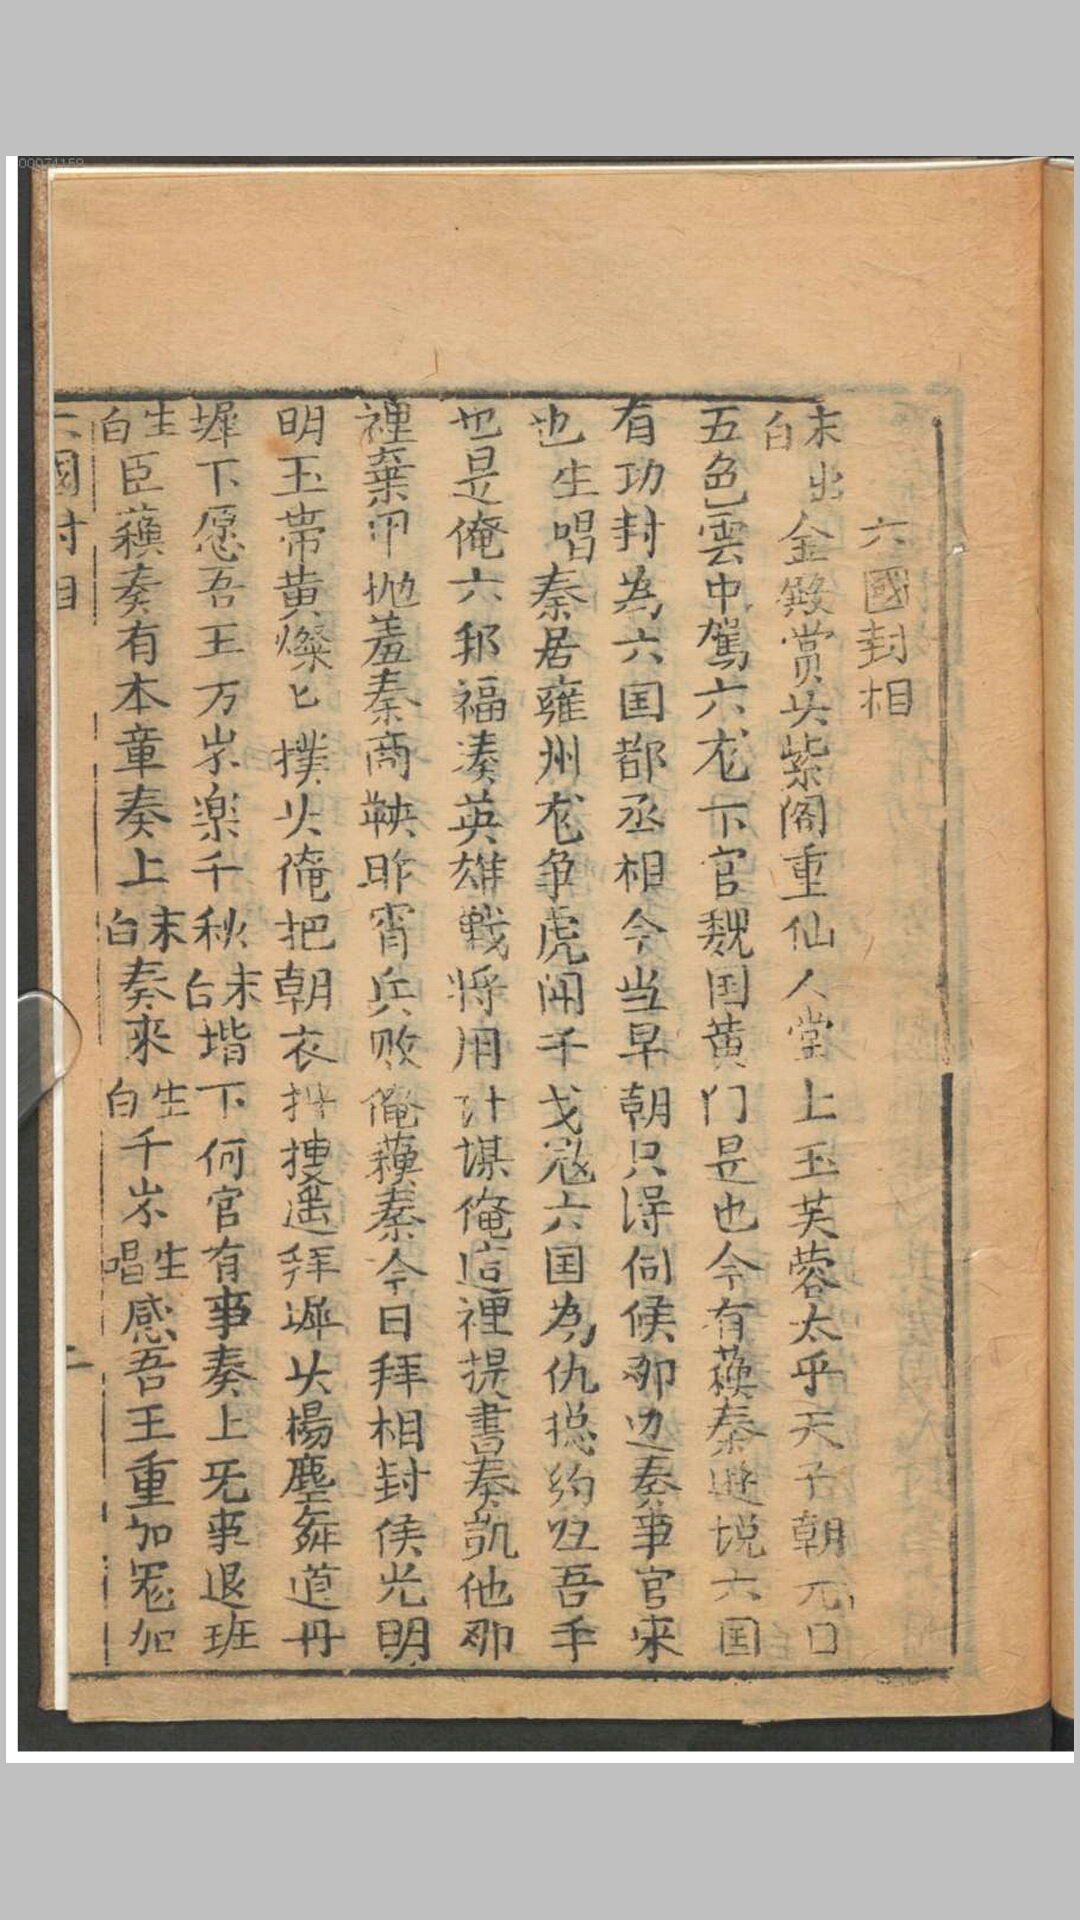 00074159
六國封相
末出白金殿賞头紫阁重仙人堂上玉芙蓉太乎天子朝元日
五色雲中駕六龙下官魏国黄门是也今有蘓秦遊悦六国
有功封為六国都丞相今当早朝只得伺候那边奏事官来
也生唱秦居雍州龙争虎闹千戈寇六国為仇摠約在吾手
也是俺六邦福湊英雄戦将用计謀俺這裡提書奏凯他那
裡棄甲抛羞秦商鞅昨宵兵败俺蘓秦今日拜相封侯光明
明玉帯黄燦匕撲头俺把朝衣抖摟遥拜墀头楊塵舞道丹
墀下愿吾王万岁楽千秋末白堦下何官有事奏上旡事退班
生白臣蘓奏有本章奏上末白奏来生白千岁生唱感吾王重加冕加
六國封相
二